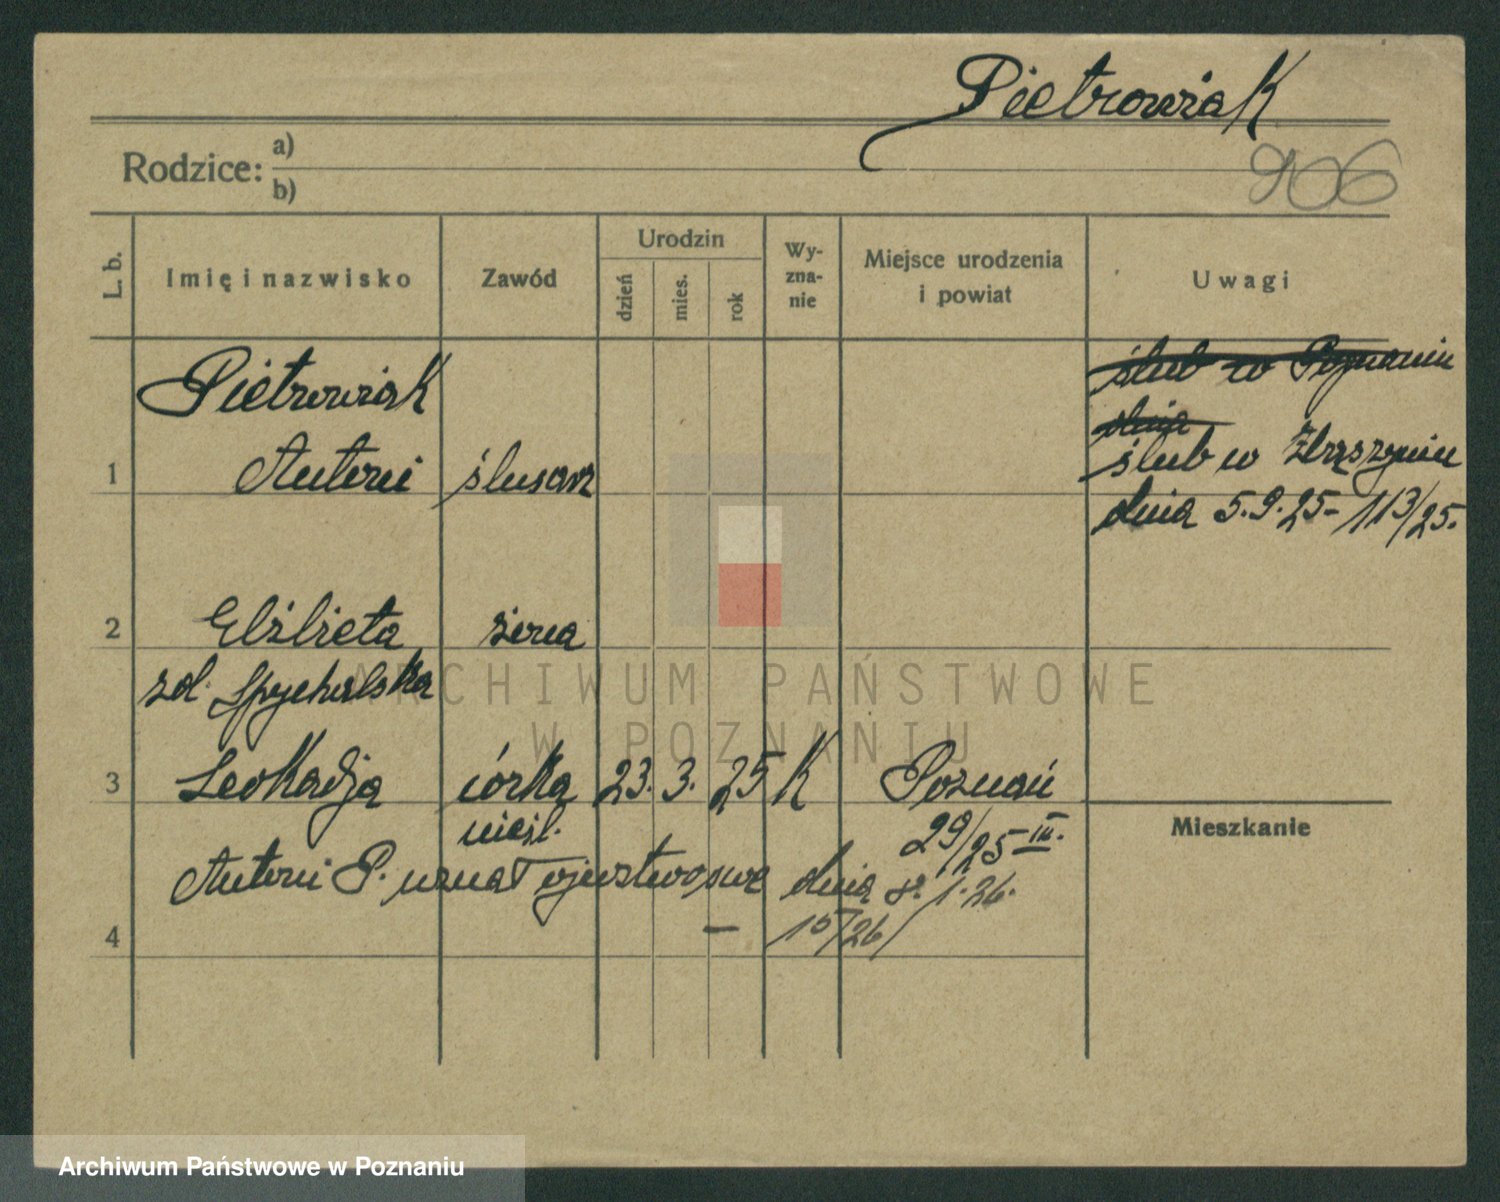 Pietrowiak
906
Rodzice: a)
b)
L. b. Imię i nazwisko Zawód Urodzin dzień mies. rok Wy-zna-nie Miejsce urodzenia i powiat Uwagi
ślub w Poznaniu
dnia
Pietrowiak
1 Antoni ślusarz
ślub w Zbrąszyniu
dnia 5.9.25 - 113/25.
2 Elżbieta żona
zd. Spychalska
ARCHIWUM PAŃSTWOWE
W POZNANIU
3 Leokadja córka 23. 3. 25 K Poznań
nieśl. 29/25 III.
Mieszkanie
Antoni P. uznał ojcostwo swe dnia 8. 1. 26.
4 — 15/26/
Archiwum Państwowe w Poznaniu